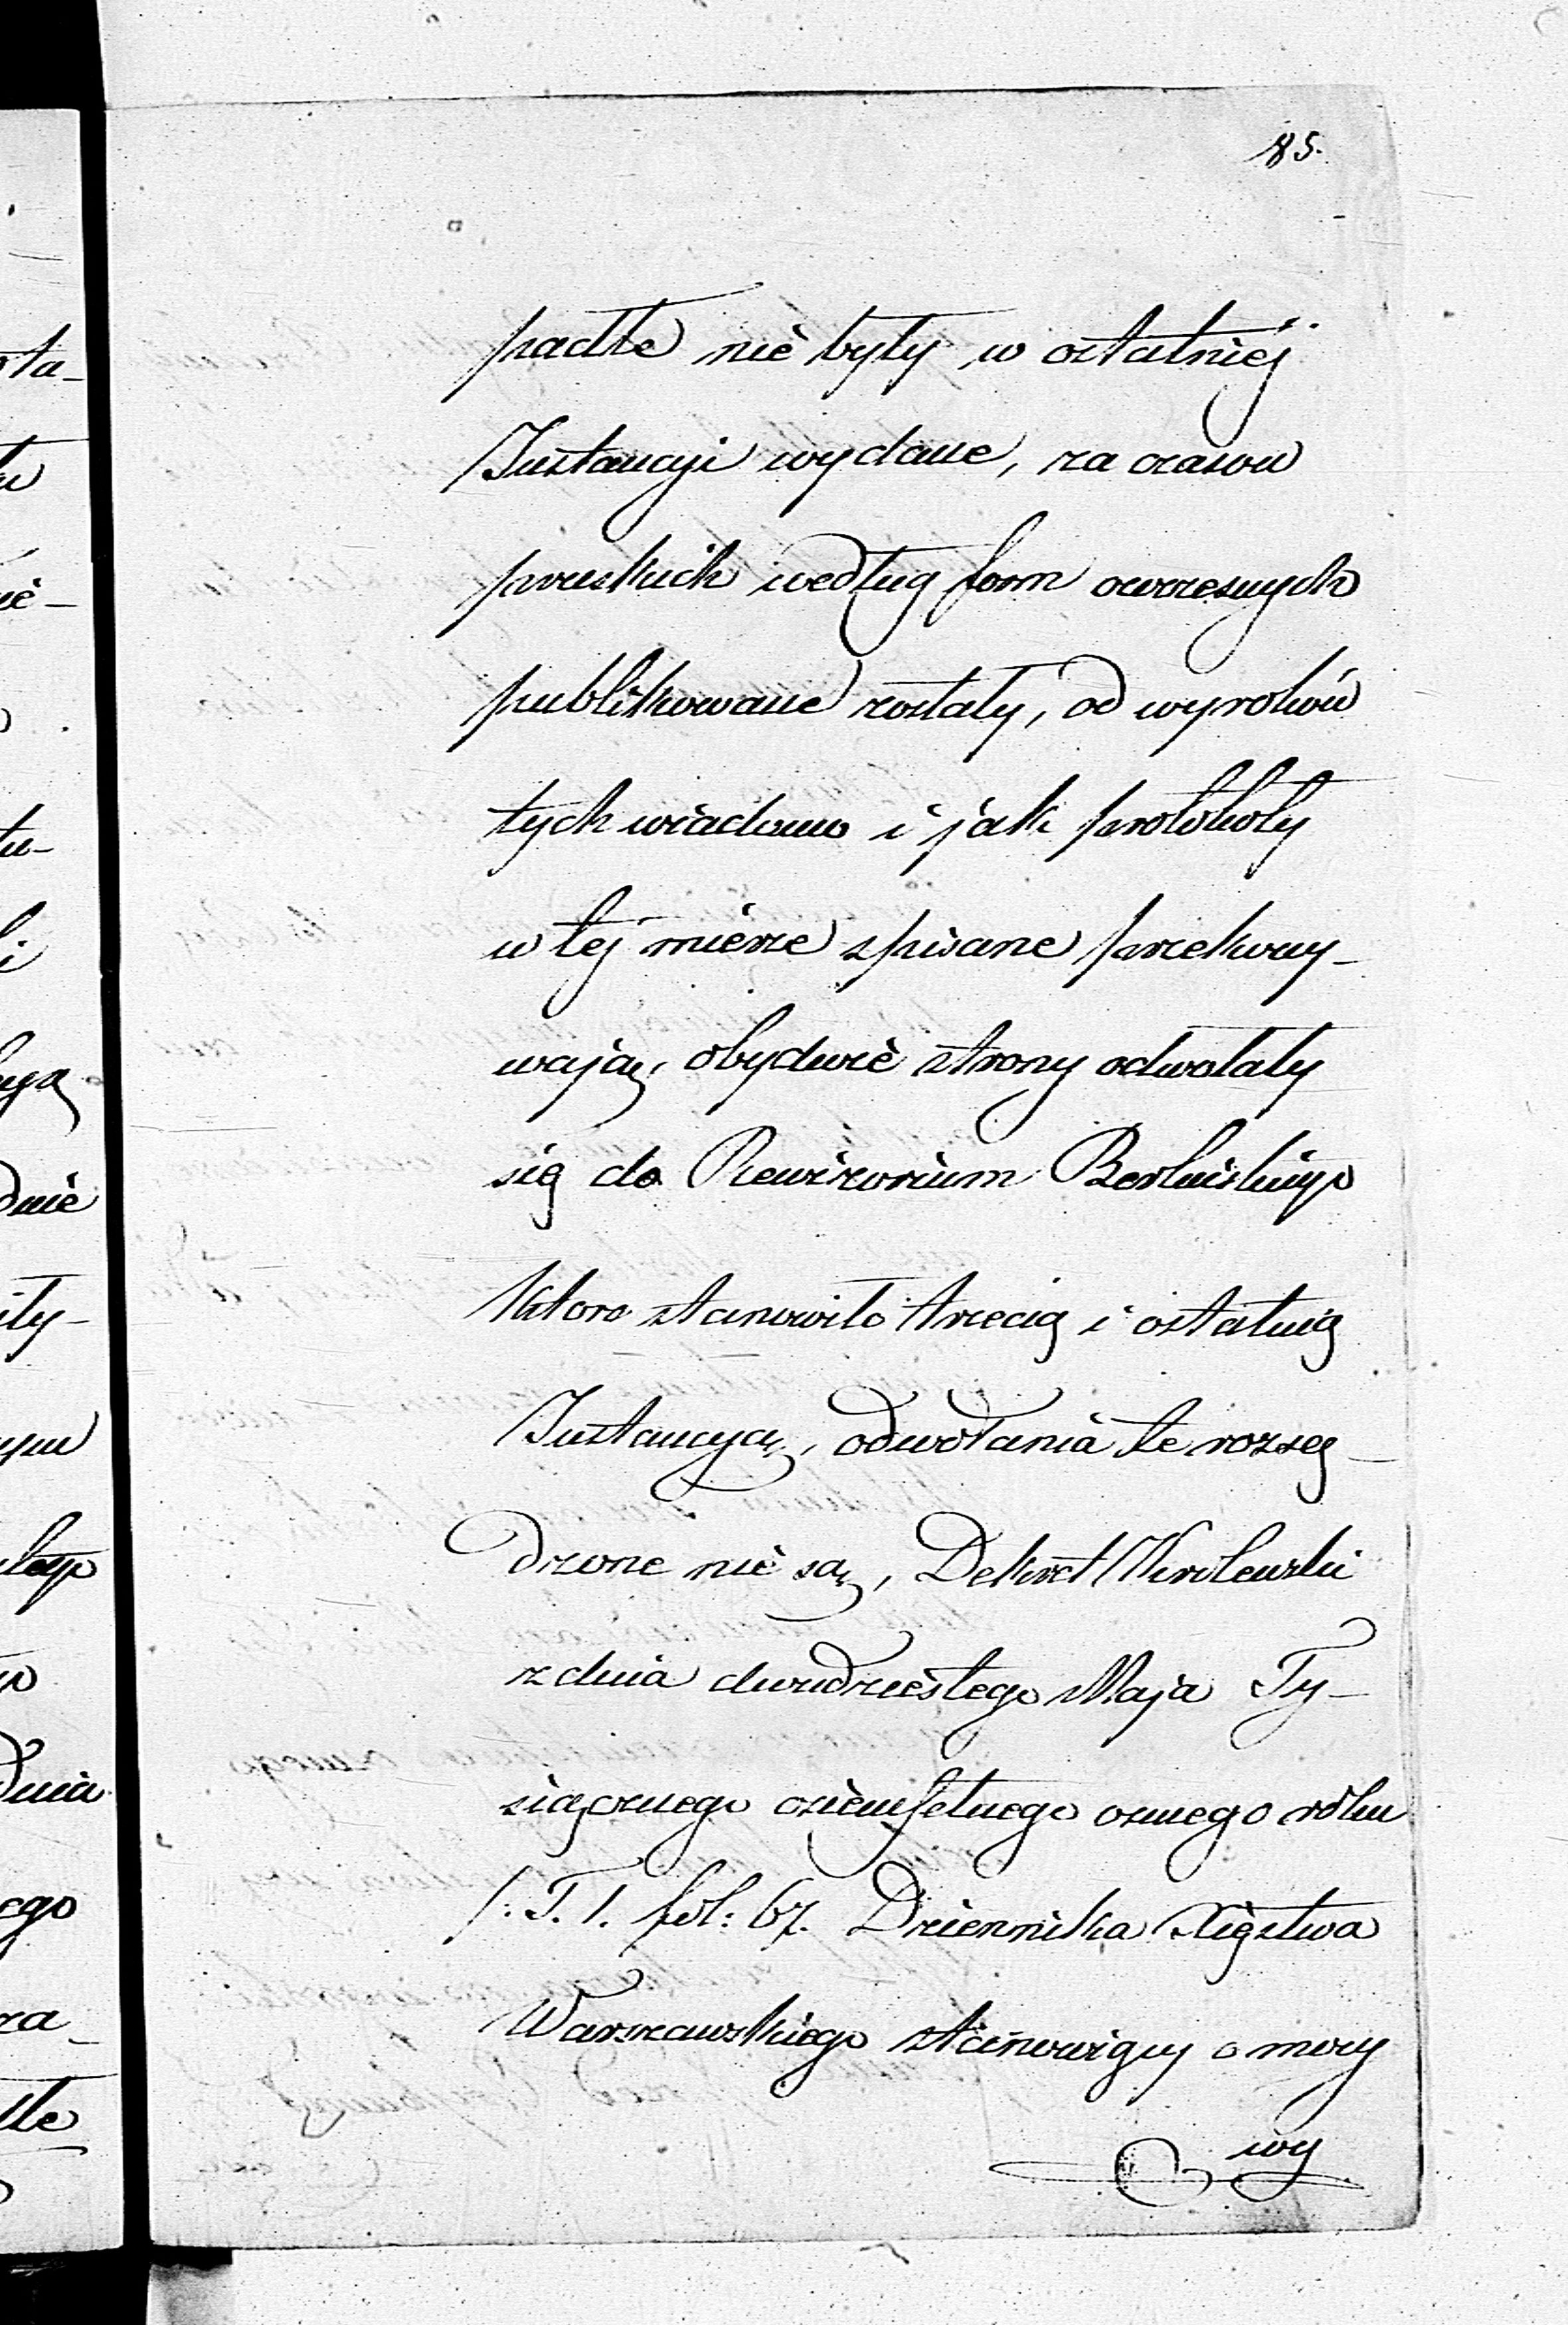 85.
padłe nie były w ostatniej
Instancyi wydane, za czasów
pruskich według form owczesnych
publikowane zostały, od wyroków
tych wiadomo i jak protokoły
w tej mierze spisane przekony-
wają, obydwie strony odwołały
się do Rewizorium Berlińskiego
które stanowiło trzecią i ostatnią
Instancyą, odwołania te rozsą-
dzone nie są, Dekret Królewski
z dnia dwudziestego Maja Ty-
siącznego ośiemsetnego osmego roku
/: T. 1. fol: 67. Dziennika Xięstwa
Warszawskiego stanowiący o mocy
wy